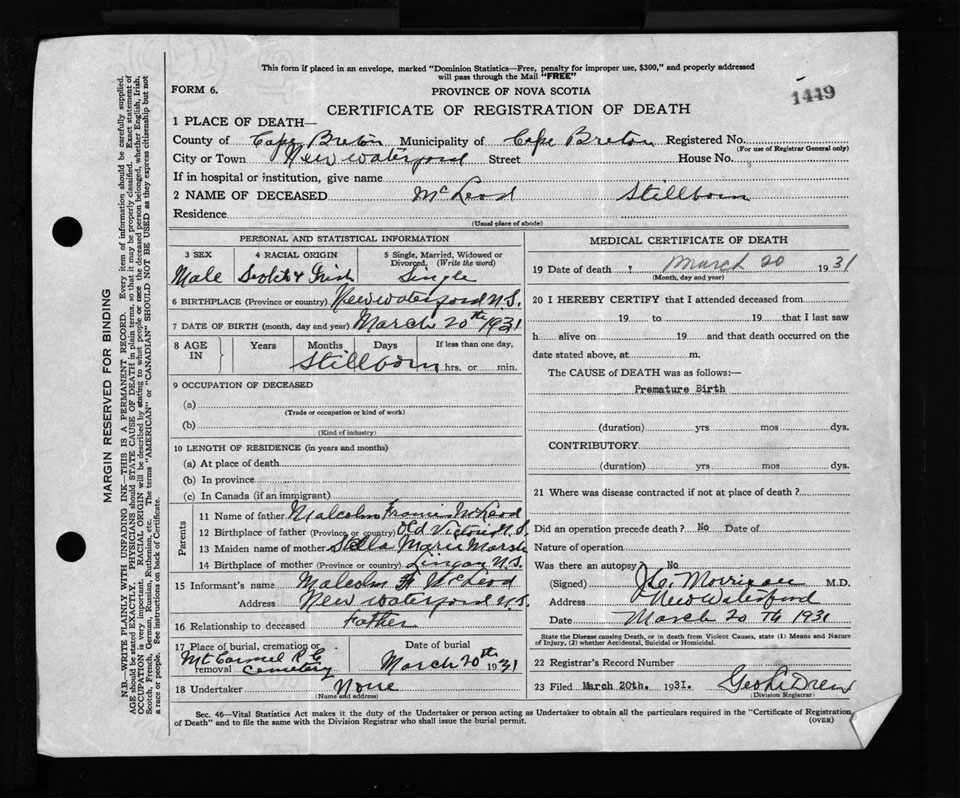 This form if placed in an envelope, marked "Dominion Statistics—Free, penalty for improper use, $300," and properly addressed
will pass through the Mail "FREE"
FORM 6.
PROVINCE OF NOVA SCOTIA
1449
CERTIFICATE OF REGISTRATION OF DEATH
1 PLACE OF DEATH—
County of Cape Breton Municipality of Cape Breton Registered No.
(For use of Registrar General only)
City or Town New Waterford Street House No.
If in hospital or institution, give name
2 NAME OF DECEASED McLeod Stillborn
Residence
(Usual place of abode)
PERSONAL AND STATISTICAL INFORMATION
3 SEX 4 RACIAL ORIGIN 5 Single, Married, Widowed or Divorced. (Write the word)
Male Scotch & Irish Single
6 BIRTHPLACE (Province or country) New Waterford N.S.
7 DATE OF BIRTH (month, day and year) March 20th 1931
8 AGE IN Years Months Days If less than one day,
Stillborn hrs. or min.
9 OCCUPATION OF DECEASED
(a)
(Trade or occupation or kind of work)
(b)
(Kind of industry)
10 LENGTH OF RESIDENCE (in years and months)
(a) At place of death
(b) In province
(c) In Canada (if an immigrant)
Parents
11 Name of father Malcolm Francis McLeod
12 Birthplace of father (Province or country) Old Victoria N.S.
13 Maiden name of mother Stella Marie Marsh
14 Birthplace of mother (Province or Country) Lingan N.S.
15 Informant's name Malcolm F McLeod
Address New Waterford N.S.
16 Relationship to deceased Father
17 Place of burial, cremation or removal Date of burial
Mt Carmel R C Cemetery March 20th 1931
18 Undertaker None
(Name and address)
MEDICAL CERTIFICATE OF DEATH
19 Date of death March 20 1931
(Month, day and year)
20 I HEREBY CERTIFY that I attended deceased from
19 to 19 that I last saw
h alive on 19 and that death occurred on the
date stated above, at m.
The CAUSE of DEATH was as follows:—
Premature Birth
(duration) yrs mos dys.
CONTRIBUTORY
(duration) yrs. mos dys.
21 Where was disease contracted if not at place of death?
Did an operation precede death? No Date of
Nature of operation
Was there an autopsy? No
(Signed) M.D.
Address New Waterford
Date March 20th 1931
State the Disease causing Death, or in death from Violent Causes, state (1) Means and Nature
of Injury, (2) whether Accidental, Suicidal or Homicidal.
22 Registrar's Record Number
23 Filed March 20th. 1931. Geo L. Drew
(Division Registrar)
Sec. 46—Vital Statistics Act makes it the duty of the Undertaker or person acting as Undertaker to obtain all the particulars required in the "Certificate of Registration
of Death" and to file the same with the Division Registrar who shall issue the burial permit.
(OVER)
MARGIN RESERVED FOR BINDING
N.B.—WRITE PLAINLY WITH UNFADING INK—THIS IS A PERMANENT RECORD. Every item of information should be carefully supplied.
AGE should be stated EXACTLY. PHYSICIANS should STATE CAUSE OF DEATH in plain terms, so that it may be properly classified. Exact statement of
OCCUPATION is very important. RACIAL ORIGIN will be described by stating to what people or race the deceased person belonged, whether English, Irish,
Scotch, French, German, Russian, Ruthenian, etc. The terms "AMERICAN" or "CANADIAN" SHOULD NOT BE USED as they express citizenship but not
a race or people. See instructions on back of Certificate.